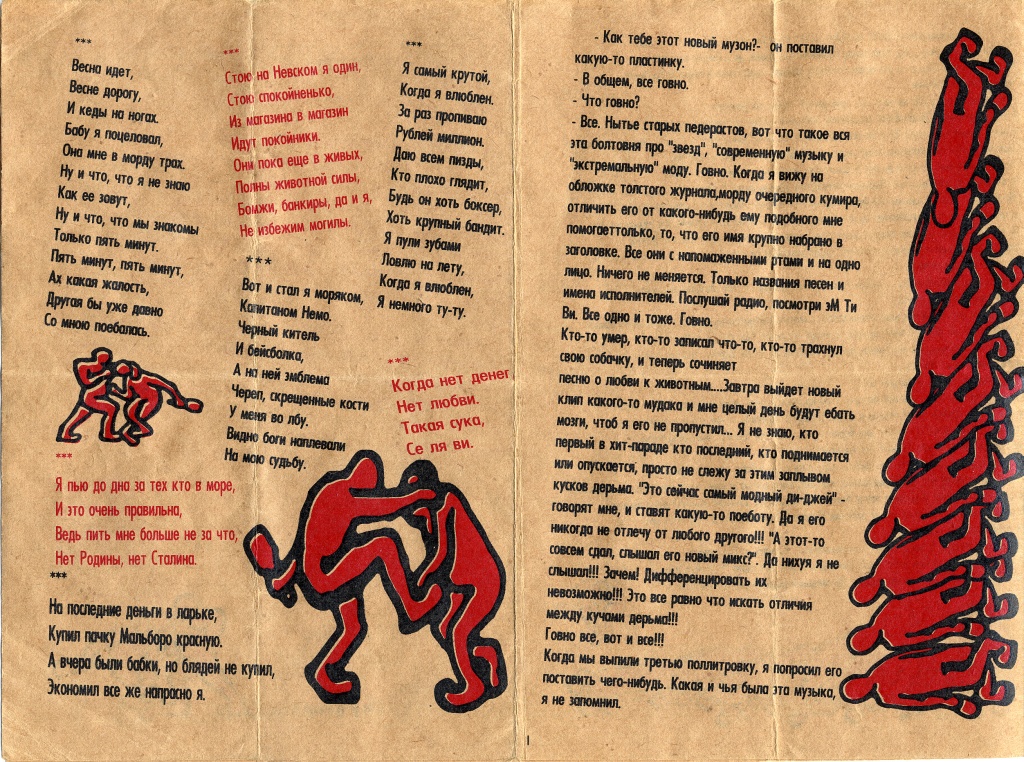 ***
Весна идет,
Весне дорогу,
И кеды на ногах.
Бабу я поцеловал,
Она мне в морду трах.
Ну и что, что я не знаю
Как ее зовут,
Ну и что, что мы знакомы
Только пять минут.
Пять минут, пять минут,
Ах какая жалость,
Другая бы уже давно
Со мною поебалась.
***
Я пью до дна за тех кто в море,
И это очень правильно,
Ведь пить мне больше не за что,
Нет Родины, нет Сталина.
***
На последние деньги в ларьке,
Купил пачку Мальборо красную.
А вчера были бабки, но блядей не купил,
Экономил все же напрасно я.
***
Стою на Невском я один,
Стою спокойненько,
Из магазина в магазин
Идут покойники.
Они пока еще в живых,
Полны животной силы,
Бомжи, банкиры, да и я,
Не избежим могилы.
***
Вот и стал я моряком,
Капитаном Немо.
Черный китель
И бейсболка,
А на ней эмблема
Череп, скрещенные кости
У меня во лбу.
Видно боги наплевали
На мою судьбу.
***
Я самый крутой,
Когда я влюблен.
За раз пропиваю
Рублей миллион.
Даю всем пизды,
Кто плохо глядит,
Будь он хоть боксер,
Хоть крупный бандит.
Я пули зубами
Ловлю на лету,
Когда я влюблен,
Я немного ту-ту.
***
Когда нет денег
Нет любви.
Такая сука,
Се ля ви.
- Как тебе этот новый музон?- он поставил
какую-то пластинку.
- В общем, все говно.
- Что говно?
- Все. Нытье старых педерастов, вот что такое вся
эта болтовня про "звезд", "современную" музыку и
"экстремальную" моду. Говно. Когда я вижу на
обложке толстого журнала,морду очередного кумира,
отличить его от какого-нибудь ему подобного мне
помогаеттолько, то, что его имя крупно набрано в
заголовке. Все они с напомаженными ртами и на одно
лицо. Ничего не меняется. Только названия песен и
имена исполнителей. Послушай радио, посмотри эМ Ти
Ви. Все одно и тоже. Говно.
Кто-то умер, кто-то записал что-то, кто-то трахнул
свою собачку, и теперь сочиняет
песню о любви к животным....Завтра выйдет новый
клип какого-то мудака и мне целый день будут ебать
мозги, чтоб я его не пропустил... Я не знаю, кто
первый в хит-параде кто последний, кто поднимается
или опускается, просто не слежу за этим заплывом
кусков дерьма. "Это сейчас самый модный ди-джей" -
говорят мне, и ставят какую-то поеботу. Да я его
никогда не отлечу от любого другого!!! "А этот-то
совсем сдал, слышал его новый микс?". Да нихуя я не
слышал!!! Зачем! Дифференцировать их
невозможно!!! Это все равно что искать отличия
между кучами дерьма!!!
Говно все, вот и все!!!
Когда мы выпили третью поллитровку, я попросил его
поставить чего-нибудь. Какая и чья была эта музыка,
я не запомнил.